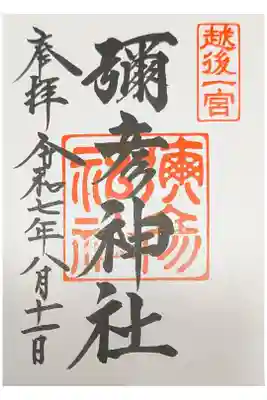 越後一宮
彌彦神社
奉拝
令和七年八月十一日